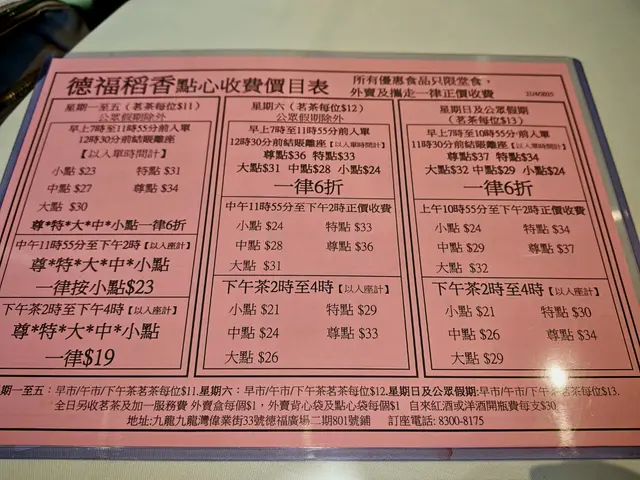 德福稻香點心收費價目表
所有優惠食品只限堂食，
外賣及攜走一律正價收費
星期一至五（茗茶每位$11）
公眾假期除外
早上7時至11時55分前入單
12時30分前結賬離座
【以入單時間計】
小點 $23 特點 $31
中點 $27 尊點 $34
大點 $30
尊*特*大*中*小點一律6折
中午11時55分至下午2時【以入座計】
尊*特*大*中*小點
一律按小點$23
下午茶2時至下午4時【以入座計】
尊*特*大*中*小點
一律$19
星期六（茗茶每位$12）
公眾假期除外
早上7時至11時55分前入單
12時30分前結賬離座【以入單時間計】
尊點$36 特點$33
大點$31 中點$28 小點$24
一律6折
中午11時55分至下午2時正價收費
小點 $24 特點 $33
中點 $28 尊點 $36
大點 $31
下午茶2時至4時【以入座計】
小點 $21 特點 $29
中點 $24 尊點 $33
大點 $26
星期日及公眾假期
（茗茶每位$13）
早上7時至10時55分前入單
11時30分前結賬離座【以入單時間計】
尊點$37 特點$34
大點$32 中點$29 小點$24
一律6折
上午10時55分至下午2時正價收費
小點 $24 特點 $34
中點 $29 尊點 $37
大點 $32
下午茶2時至4時【以入座計】
小點 $21 特點 $30
中點 $26 尊點 $34
大點 $29
期一至五：早市/午市/下午茶茗茶每位$11.星期六：早市/午市/下午茶茗茶每位$12.星期日及公眾假期:早市/午市/下午茶茗茶每位$13.
全日另收茗茶及加一服務費 外賣盒每個$1，外賣背心袋及點心袋每個$1 自來紅酒或洋酒開瓶費每支$30
地址:九龍九龍灣偉業街33號德福廣場二期801號鋪 訂座電話: 8300-8175